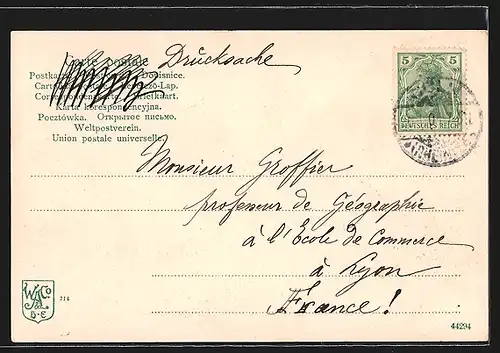 Carte postale
Drucksache
5 5
Postkarte Dopisnice.
Lap.
Briefkaart.
Karta korespondencyjna.
Pocztówka. Открытое письмо.
Weltpostverein.
Union postale universelle.
DEUTSCHES REICH
Monsieur Groffier
professeur de Géographie
à l'École de Commerce
à Lyon
France!
W & Co
314
44294